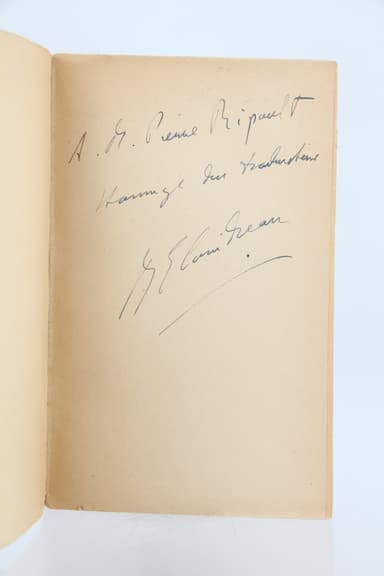 A. M. Pierre Ripault
Hommage du traducteur